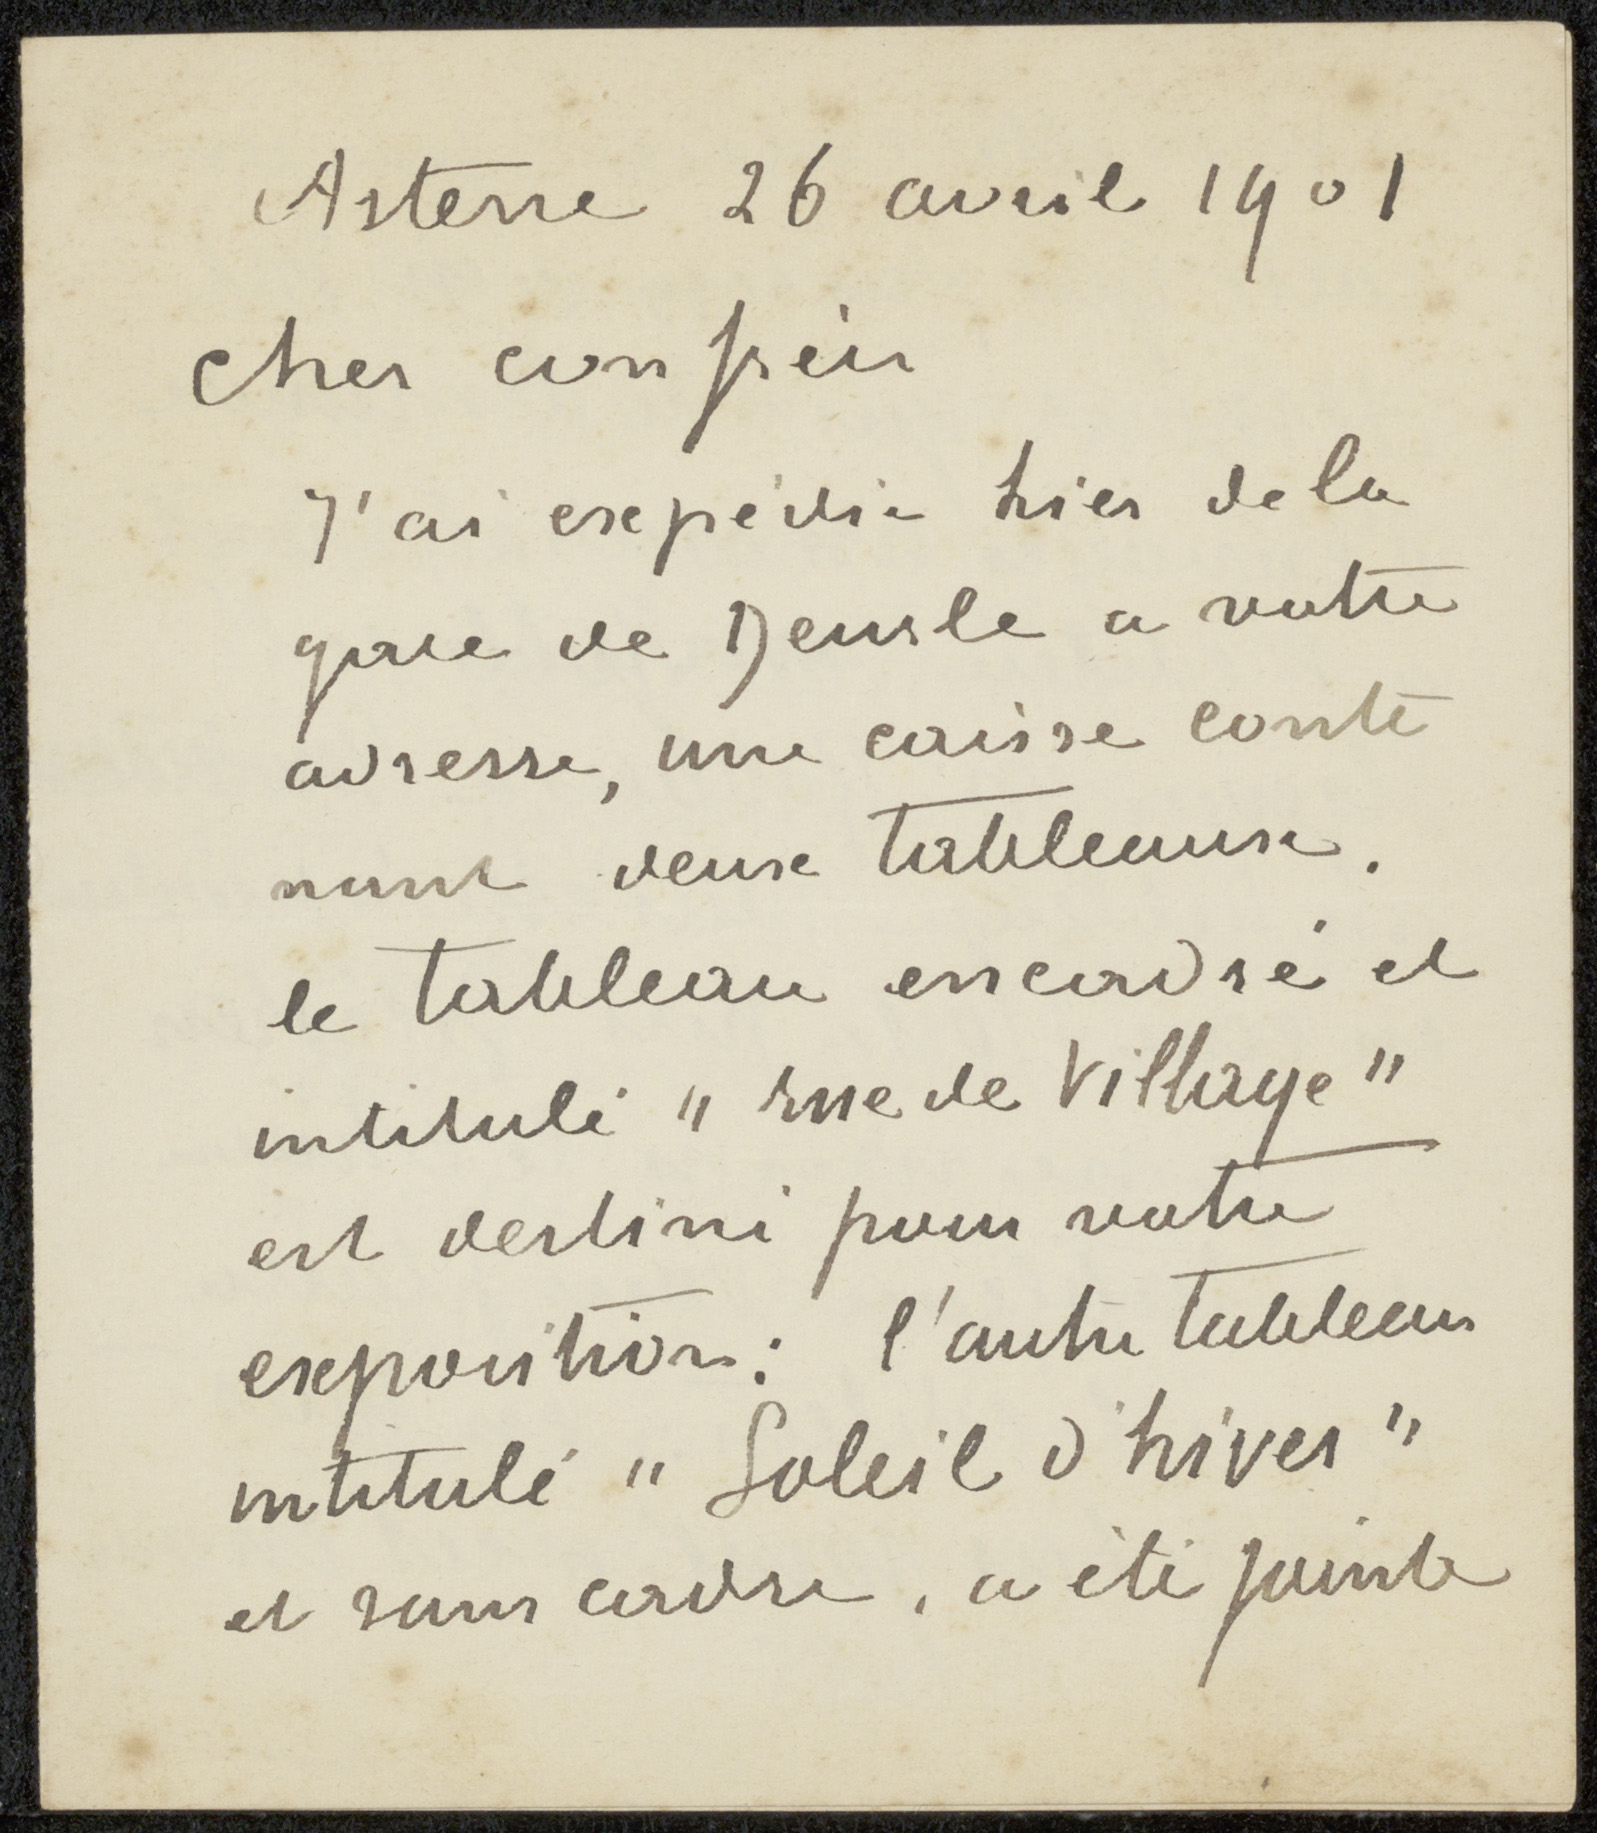 Astene 26 avril 1901
cher confrère
J'ai expédié hier de la
gare de Deurle a votre
adresse, une caisse conte
nant deux tableaux.
le tableau encadré et
intitulé " rue de Village "
est destiné pour votre
exposition : l'autre tableau
intitulé " Soleil d'hiver "
et sans cadre, a été jointe